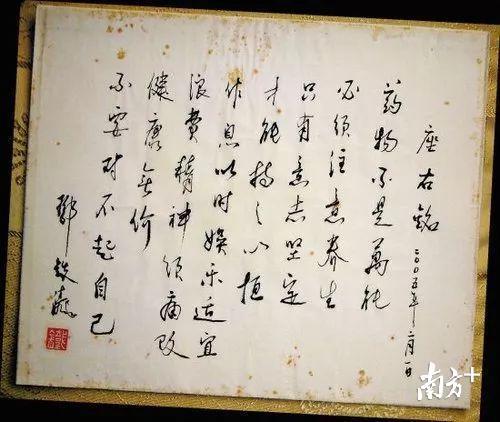 座右铭
二〇〇五年二月一日
药物不是萬能
必须注意养生
只有意志坚定
才能持之以恒
作息以时娱乐适宜
浪费精神须痛改
健康无价
不要对不起自己
南方+